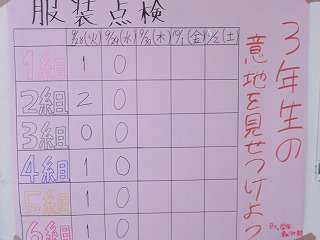 服装点検
9/28(火) 9/29(水) 9/30(木) 10/1(金) 10/2(土)
1組 1 0
2組 2 0
3組 0 0
4組 1 0
5組 1 0
6組 1 0
3年生の
意地を見せつけよう